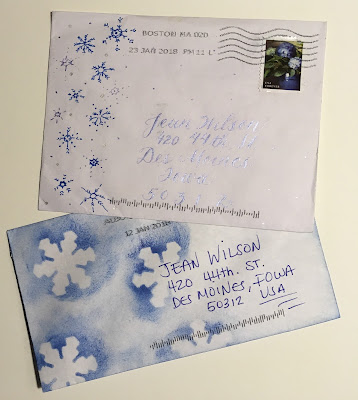 BOSTON MA 020
23 JAN 2018 PM 11 L
Jean Wilson
420 44th St
Des Moines
Iowa
503
12 JAN 2018
JEAN WILSON
420 44th. ST.
DES MOINES, IOWA
50312 USA